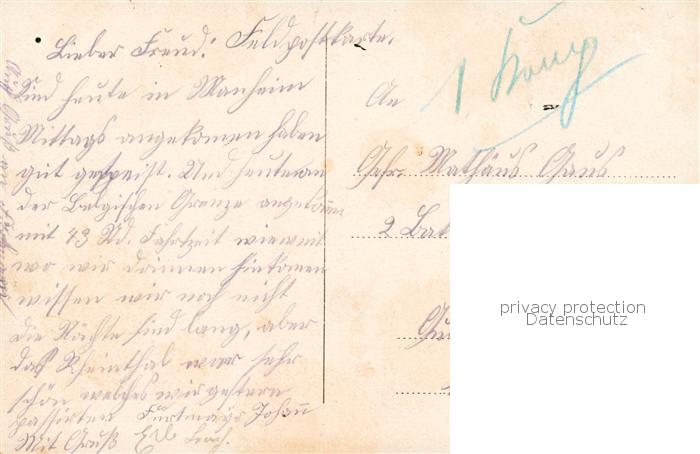 Lieber Freud! Feldpostkarte.
Sind heute in Manheim
Mittags angekomen haben
gut gespeist. Und heute an
der Belgischen Grenze angekomen
mit 43 Std. Fahrtzeit wieweit
wo wir drinnen hinkomen
wissen wir noch nicht
die Nächte sind lang, aber
das Rheinthal war sehr
schön welches wir gestern
passirten Furtmayr Johan
Mit Gruß
An
Gefr. Mathäus Gaus
2 Bat
privacy protection
Datenschutz